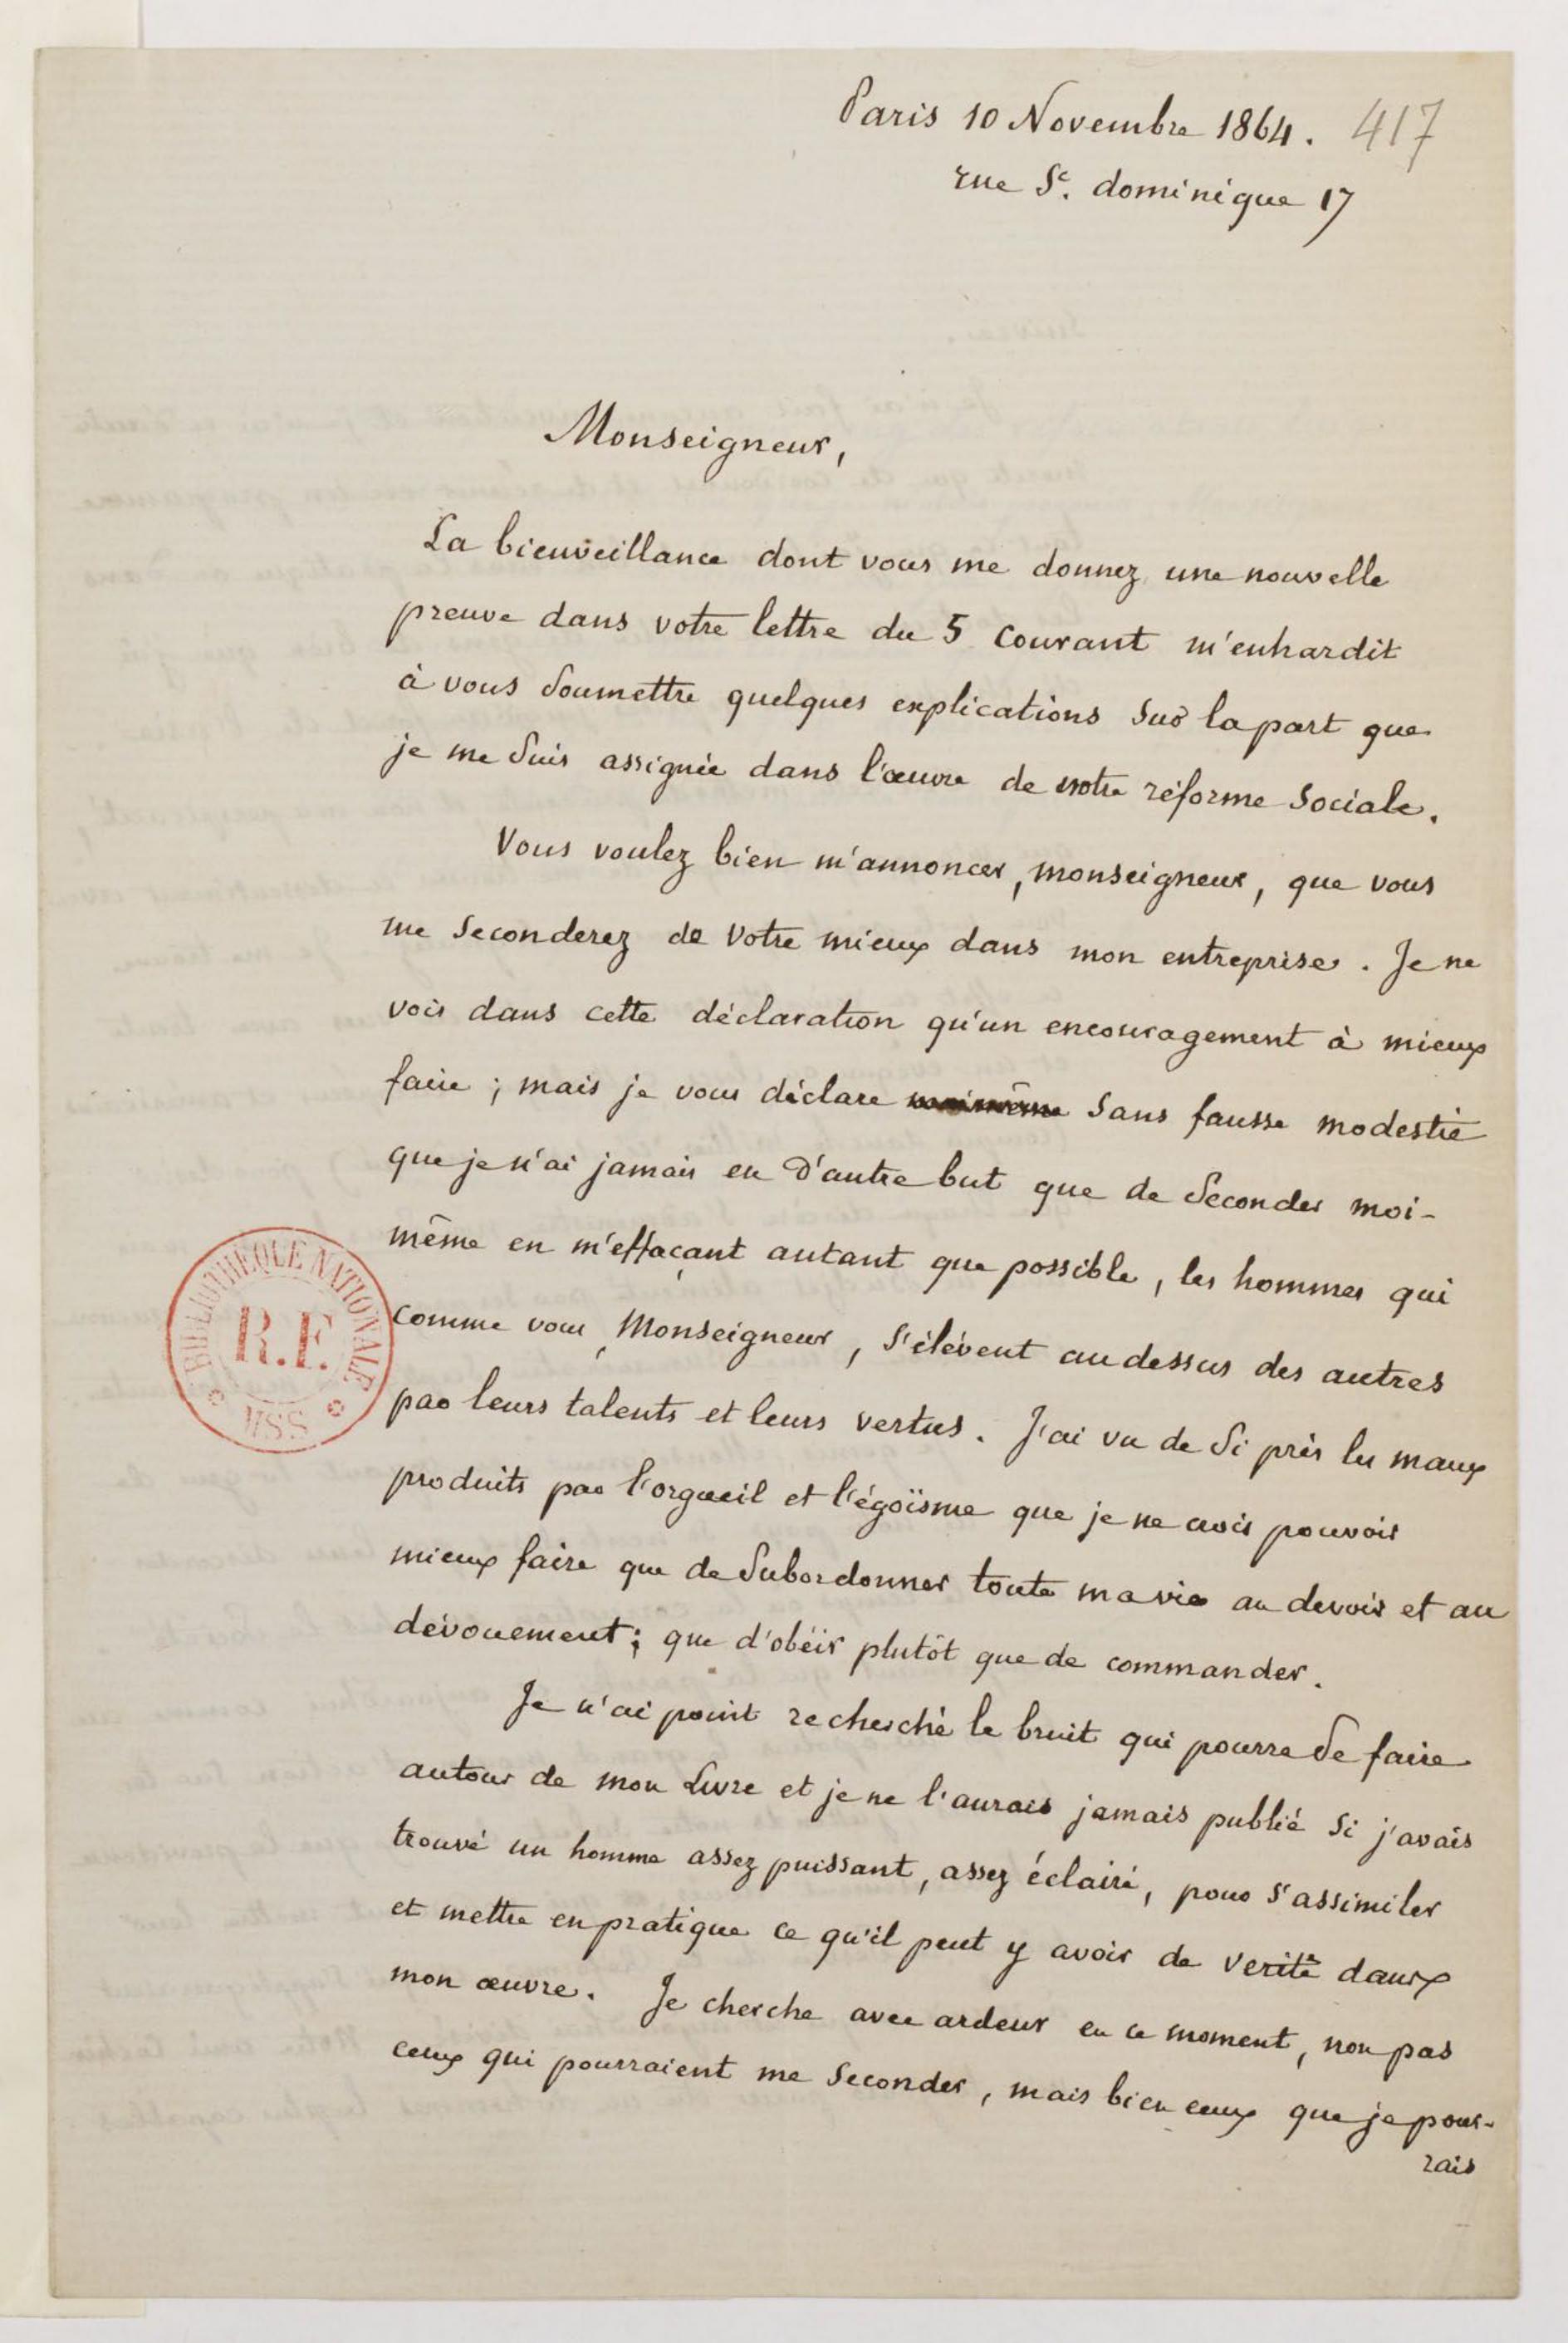 Paris 10 Novembre 1864. 417
rue St. dominique 17
Monseigneur,
La bienveillance dont vous me donnez une nouvelle
preuve dans votre lettre du 5 courant m'enhardit
à vous soumettre quelques explications sur la part que
je me suis assignée dans l'œuvre de notre réforme sociale.
Vous voulez bien m'annoncer, monseigneur, que vous
me seconderez de votre mieux dans mon entreprise. Je ne
vois dans cette déclaration qu'un encouragement à mieux
faire ; mais je vous déclare sans fausse modestie
que je n'ai jamais eu d'autre but que de seconder moi-
même en m'effaçant autant que possible, les hommes qui
comme vous, Monseigneur, s'élèvent au dessus des autres
par leurs talents et leurs vertus. J'ai vu de si près les maux
produits par l'orgueil et l'égoïsme que je ne crois pouvoir
mieux faire que de subordonner toute ma vie au devoir et au
dévouement ; que d'obéir plutôt que de commander.
Je n'ai point recherché le bruit qui pourra se faire
autour de mon Livre et je ne l'aurais jamais publié si j'avais
trouvé un homme assez puissant, assez éclairé, pour s'assimiler
et mettre en pratique ce qu'il peut y avoir de verité dans
mon œuvre. Je cherche avec ardeur en ce moment, non pas
ceux qui pourraient me seconder, mais bien ceux que je pour-
rais
BIBLIOTHEQUE NATIONALE
R.F.
MSS